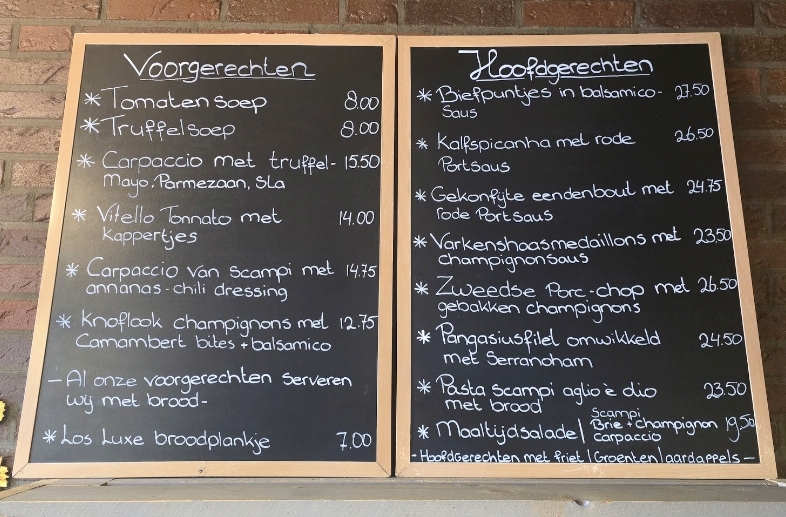 Voorgerechten
* Tomaten soep 8.00
* Truffelsoep 8.00
* Carpaccio met truffel- 15.50
Mayo, Parmezaan, Sla
* Vitello Tonnato met 14.00
kappertjes
* Carpaccio van scampi met 14.75
annanas-chili dressing
* Knoflook champignons met 12.75
Camambert bites + balsamico
- Al onze voorgerechten serveren
wij met brood-
* Los Luxe broodplankje 7.00
Hoofdgerechten
* Biefpuntjes in balsamico- 27.50
Saus
* Kalfspicanha met rode 26.50
Portsaus
* Gekonfijte eendenbout met 24.75
rode Portsaus
* Varkenshaasmedaillons met 23.50
champignonsaus
* Zweedse Porc-chop met 26.50
gebakken champignons
* Pangasiusfilet omwikkeld 24.50
met Serranoham
* Pasta scampi aglio è olio 23.50
met brood
Scampi
* Maaltijdsalade | Brie + champignon 19.50
carpaccio
- Hoofdgerechten met friet | Groenten | aardappels -